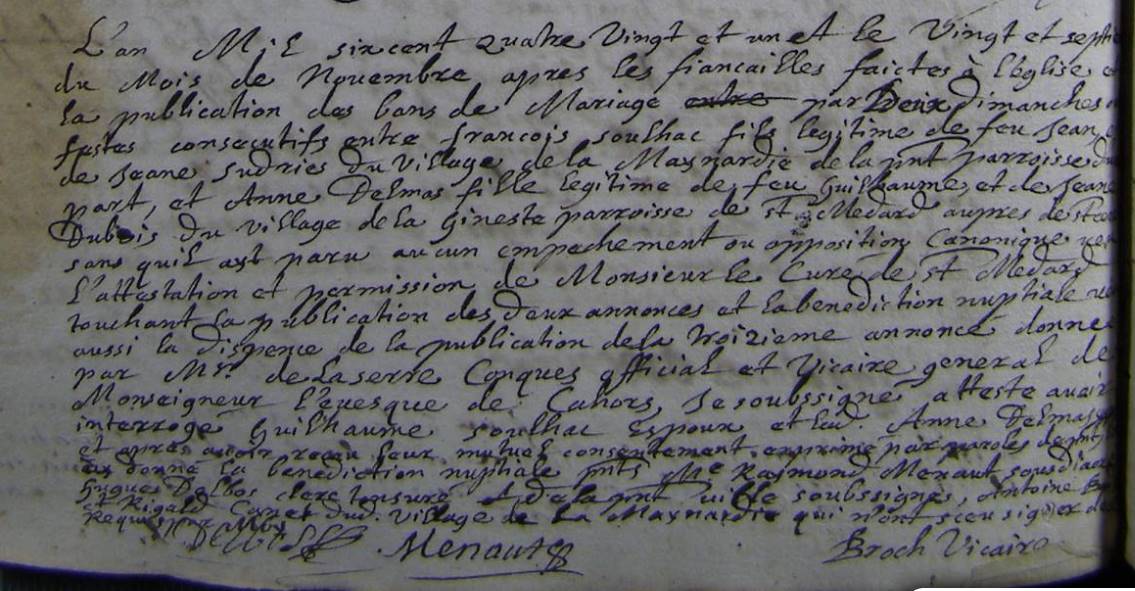 L'an Mil six cent quatre Vingt et un et le Vingt et septie
du Mois de Novembre, apres les fiancailles faictes à l'église e
la publication des bans de Mariage entre par Deux dimanches
festes consecutifs entre francois soulhac fils legitime de feu Jean e
de Jeane Sudries du Village de la Maynardie de la pnt parroisse du
part, et Anne Delmas fille legitime de feu Guilhaume et de Jeane
Dubois du village de la Gineste parroisse de St Medard aupres de
sans quil ayt paru aucun empachement ou opposition Canonique veu
l'attestation et permission de Monsieur le Cure de St Medard
touchant la publication des deux annonces et la benediction nuptiale
aussi la dispence de la publication de la troizieme annonce donnee
par Mr. de Laserre Conques official et Vicaire general de
Monseigneur l'evesque de Cahors, Je soubssigné atteste avoir
interrogé Guilhaume soulhac Espoux et lad. Anne Delmas
et apres avoir receu leur mutuel consentement exprime par paroles de pnt
ay donné la benediction nuptiale pnts Me Raymond Menaut sousdiacre
Hugues Delbos clerc tonsuré de la pnt ville soubssignés, Antoine
Rigald dud. Village de La Maynardie qui n'ont sceu signer de
Requis par moy
Delbos Menaut Broch Vicaire